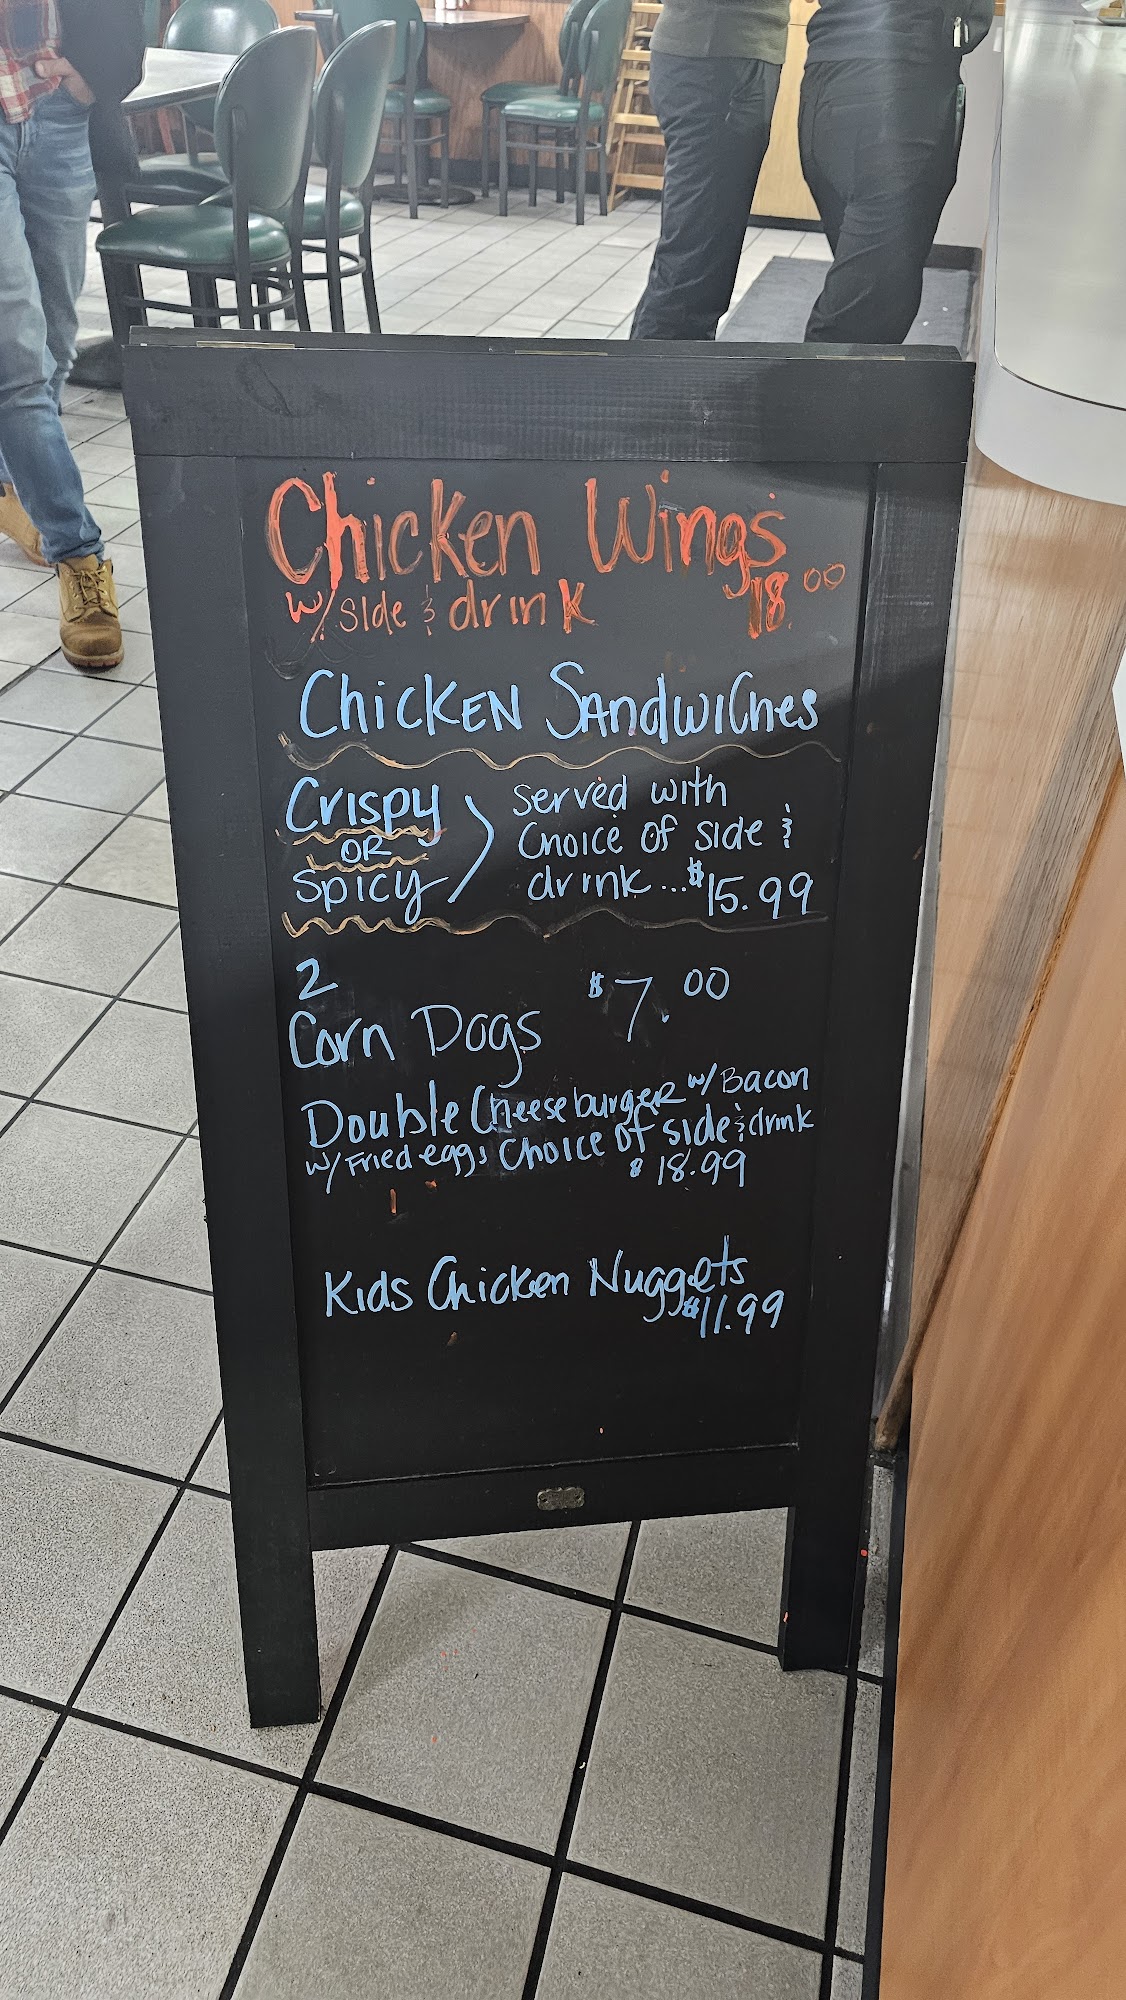 Chicken Wings
w/ side & drink 18.00
Chicken Sandwiches
Crispy
OR
Spicy
Served with
Choice of side &
drink...$15.99
2
Corn Dogs $7.00
Double Cheeseburger w/ Bacon
w/ Fried eggs Choice of side & drink
$18.99
Kids Chicken Nuggets
$11.99